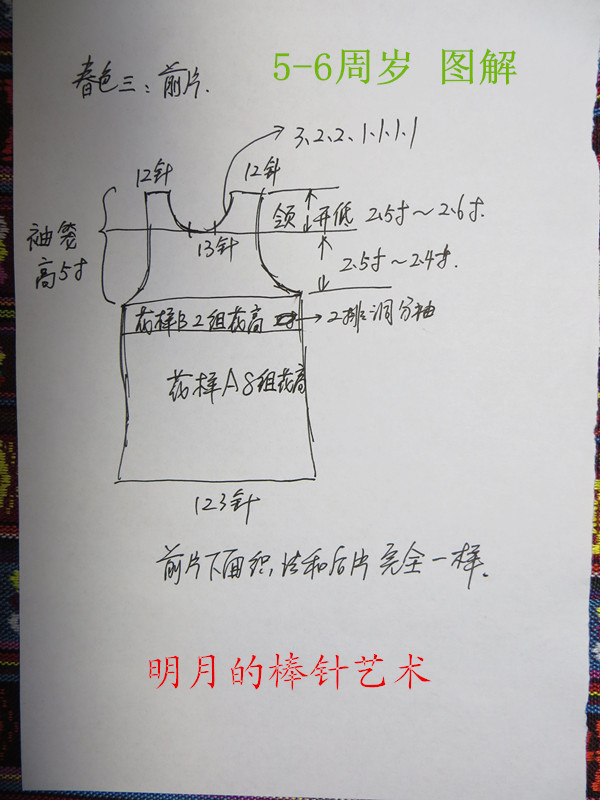 5-6周岁 图解
春色三：前片.
3、2、2、1、1、1、1
12针
12针
领开低 2.5寸～2.6寸.
13针
袖笼
高5寸
2.5寸～2.4寸.
花样B 2组花高
2排洞分袖
花样A 8组花高
123针
前片下面织法和后片完全一样。
明月的棒针艺术